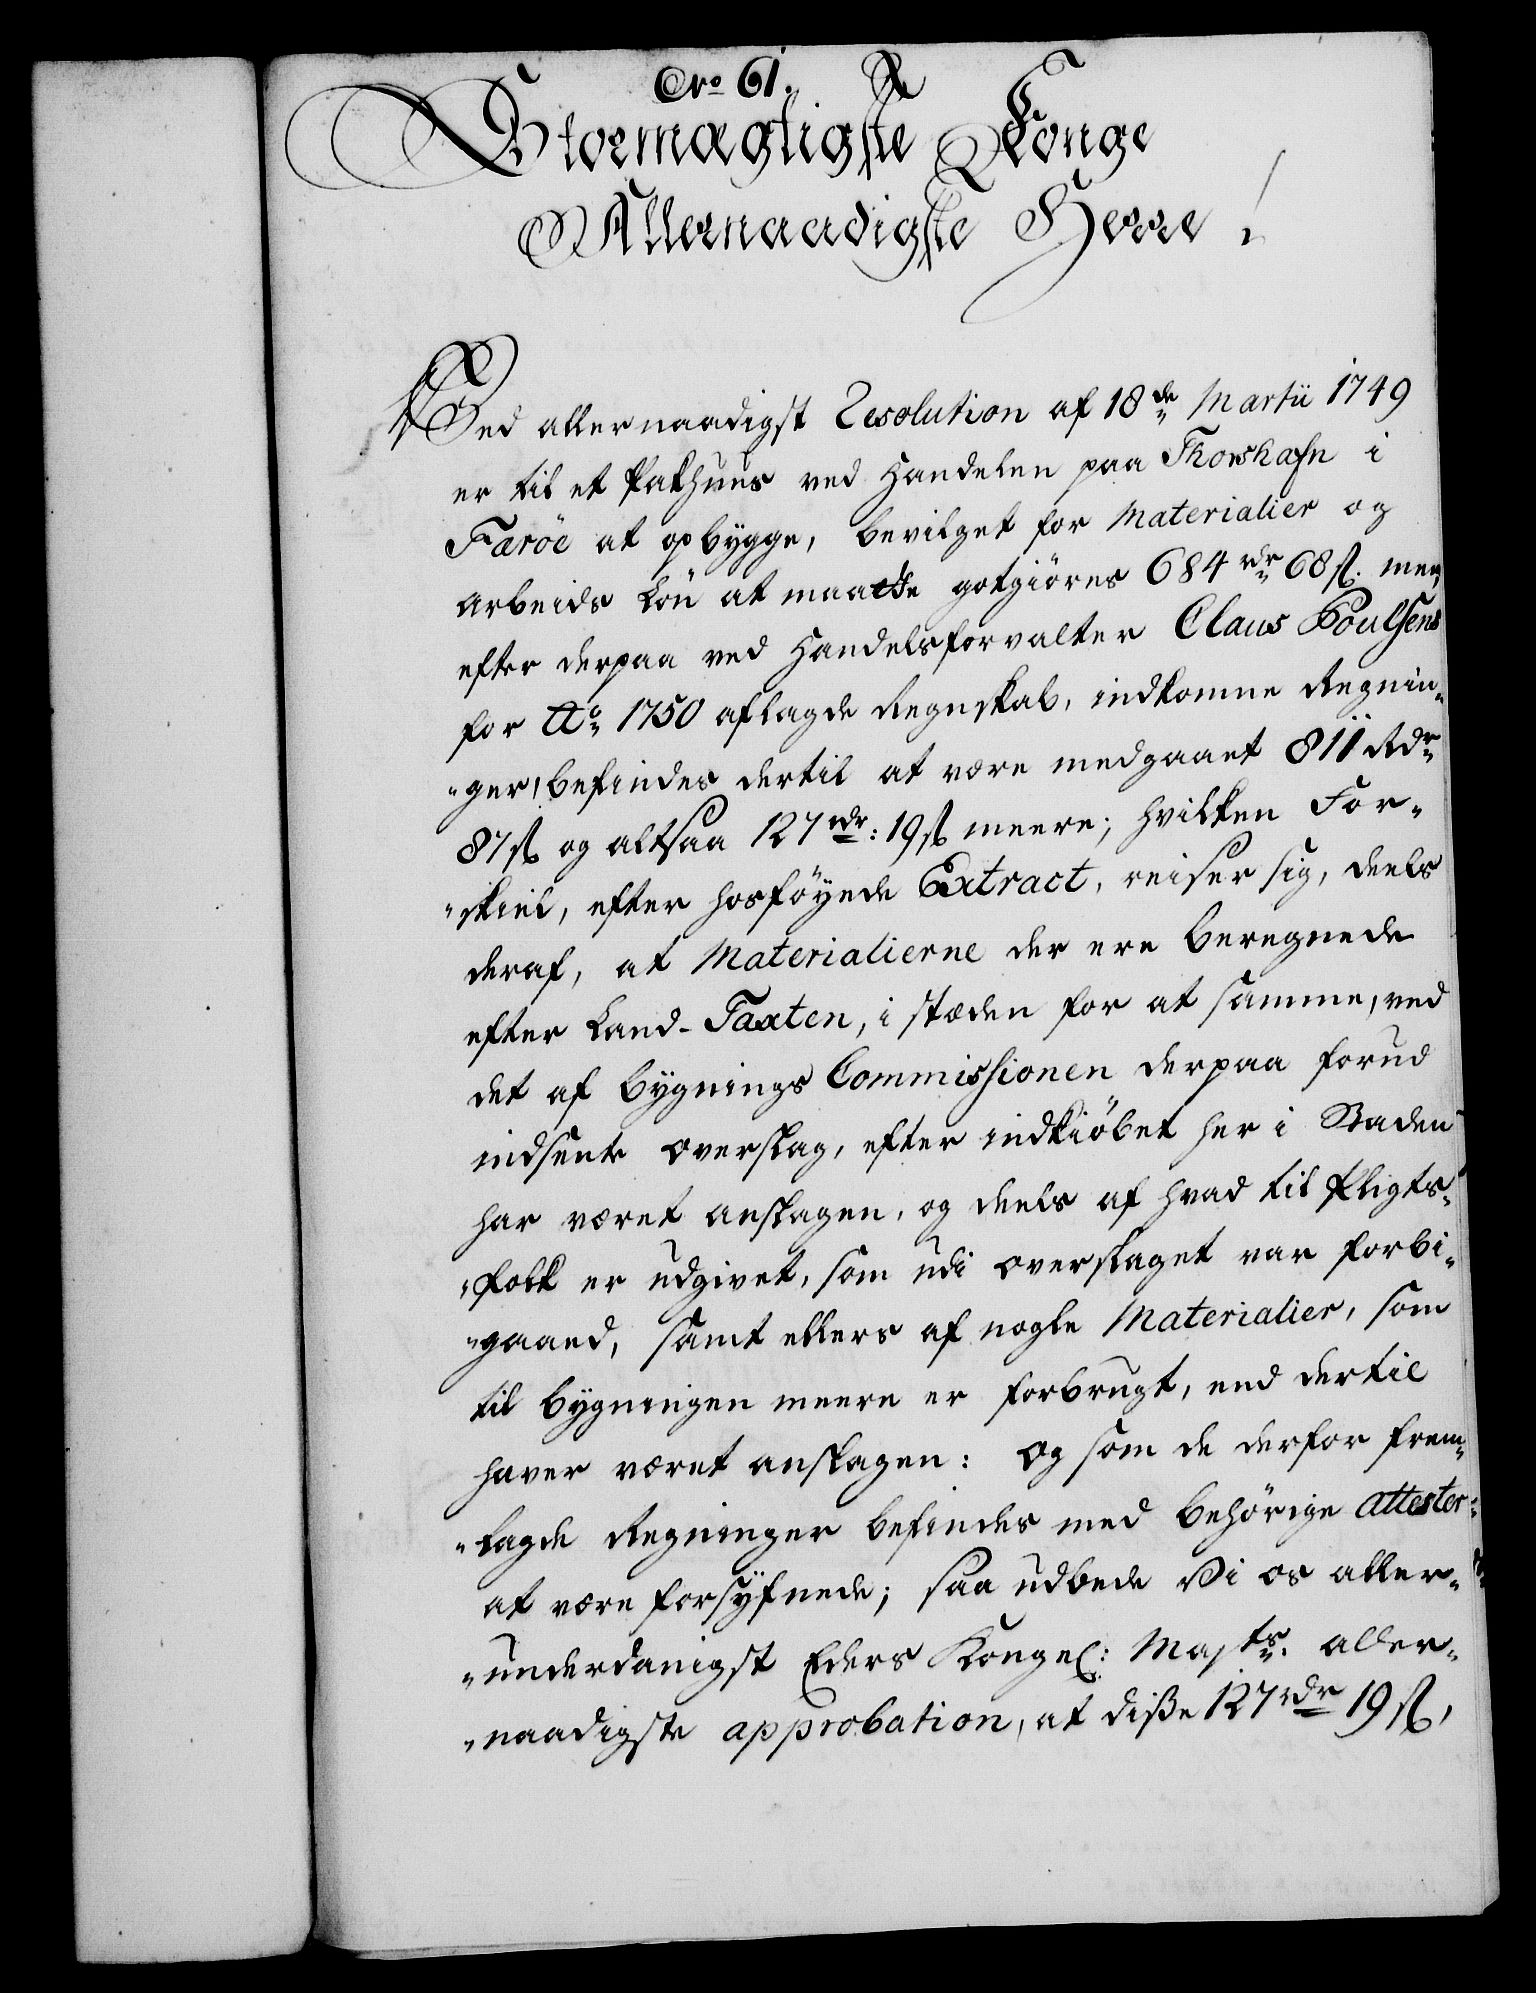 No 61.
Stormægtigste Konge
Allernaadigste Herre!
Ved allernaadigst Resolution af 18de Martii 1749
er til et Pakhuus ved Handelen paa Thorshafn i
Færöe at opbygge, bevilget for Materialier og
Arbeids Lön at maatte gotgiöres 684 rdr 68 s. men
efter derpaa ved Handelsforvalter Claus Poulsens
for Ao 1750 aflagde Regnskab, indkomne Regnin-
-ger, befindes dertil at være medgaaet 811 Rdr
87 s og altsaa 127 rdr: 19 s meere; hvilken For-
-skiel, efter hosföyede Extract, reiser sig, deels
deraf, at Materialierne der ere beregnede
efter Land-Taxten, i stæden for at samme, ved
det af bygnings Commissionen derpaa forud
indsente Overslag, efter indkiöbet her i Staden
har været anslagen, og deels af hvad til Pligts-
-folk er udgivet, som udi Overslaget var forbi-
-gaaed, samt ellers af nogle Materialier, som
til bygningen meere er forbrugt, end dertil
haver været anslagen: Og som de derfor frem-
-lagde Regninger befindes med behörige Attester
at være forsÿfnede; saa udbede Vi os aller-
-underdanigst Eders Kongel: Majts. aller-
-naadigste approbation, at diße 127 rdr 19 s,